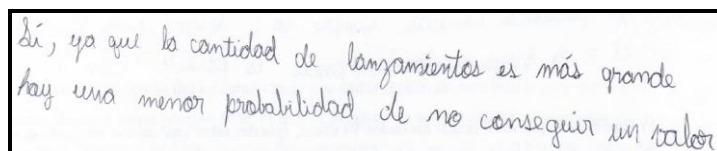 Sí, ya que la cantidad de lanzamientos es más grande
hay una menor probabilidad de no conseguir un valor